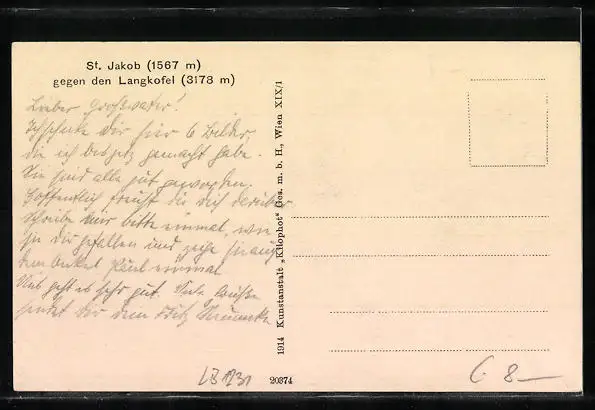 St. Jakob (1567 m)
gegen den Langkofel (3178 m)
Lieber Großvater!
Ich schicke dir hier 6 Bilder,
die ich gemacht habe.
Sie sind alle gut geworden.
Hoffentlich freust du dich darüber.
Schreibe mir bitte einmal, wie
sie dir gefallen und zeige sie auch
dem Onkel einmal.
Uns geht es sehr gut. Viele Grüße
sendet dir dein Fritz
1914 Kunstanstalt "Kilophot" Ges. m. b. H., Wien XIX/1
20374
8—